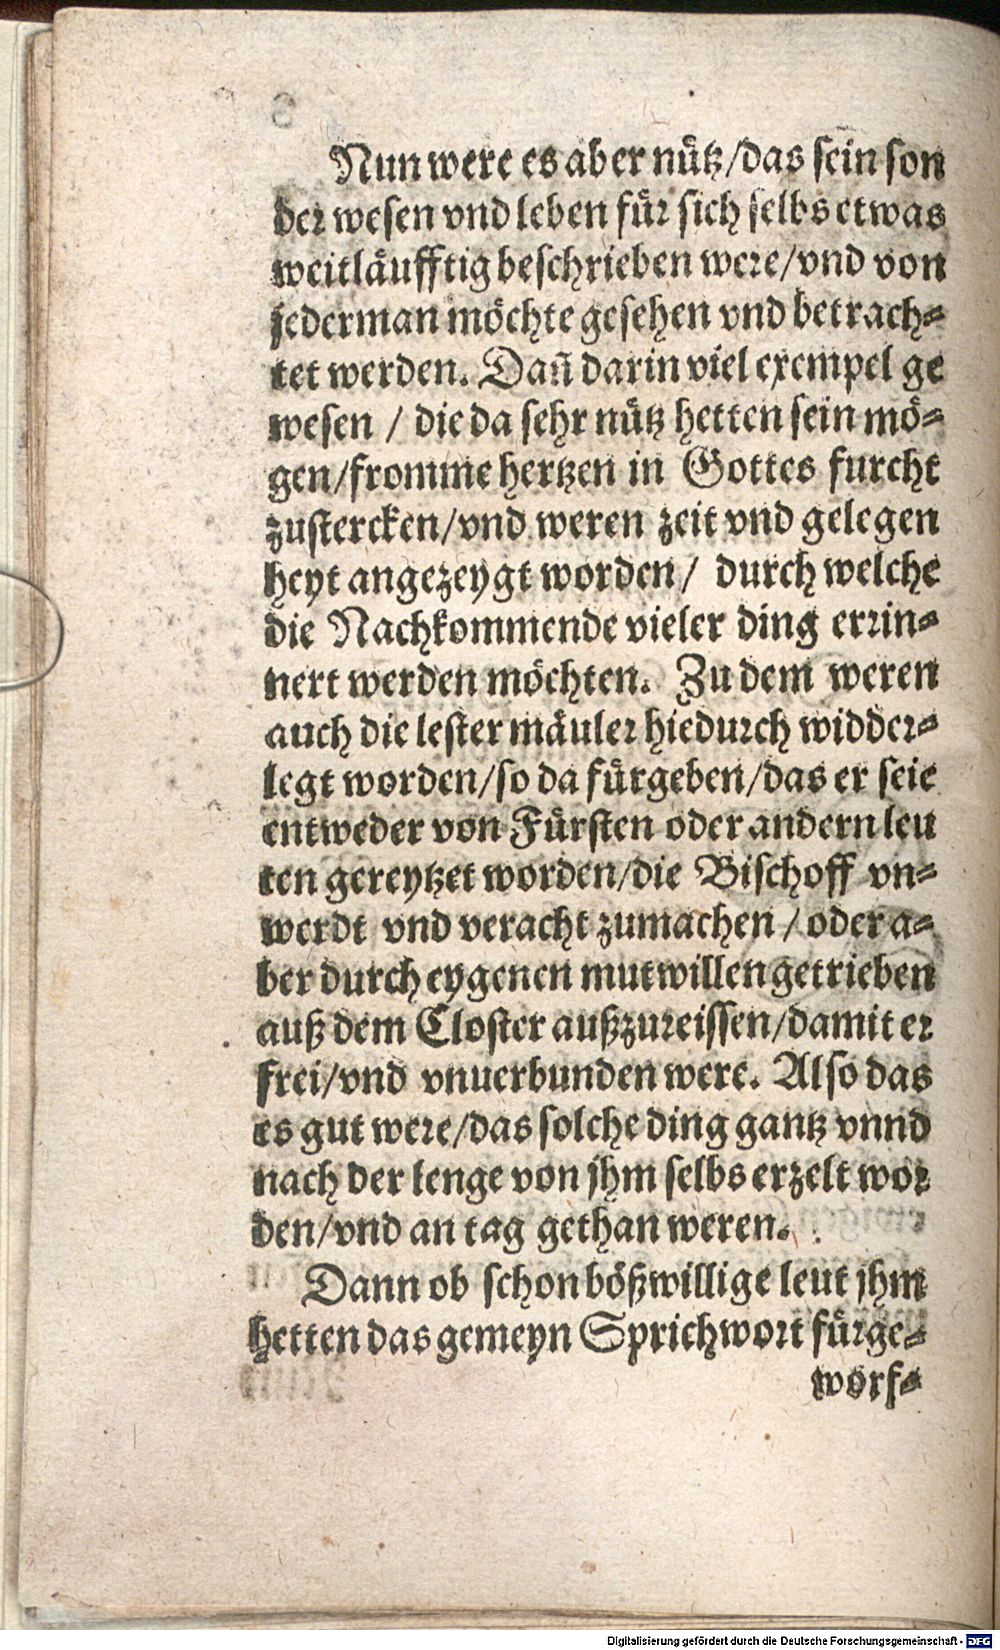 Nun were es aber nütz/das sein son
der wesen vnd leben für sich selbs etwas
weitläufftig beschrieben were/vnd von
jederman möchte gesehen vnd betrach-
tet werden. Dañ darin viel exempel ge
wesen / die da sehr nütz hetten sein mö-
gen/fromme hertzen in Gottes furcht
zustercken/vnd weren zeit vnd gelegen
heyt angezeygt worden / durch welche
die Nachkommende vieler ding errin-
nert werden möchten. Zu dem weren
auch die lester mäuler hiedurch widder-
legt worden/so da fürgeben/das er seie
entweder von Fürsten oder andern leu
ten gereytzet worden/die Bischoff vn-
werdt vnd veracht zumachen / oder a-
ber durch eygenen mutwillen getrieben
auß dem Closter außzureissen/damit er
frei/vnd vnuerbunden were. Also das
es gut were/das solche ding gantz vnnd
nach der lenge von jhm selbs erzelt wor
den/vnd an tag gethan weren.
Dann ob schon bößwillige leut jhm
hetten das gemeyn Sprichwort fürge-
worf-
Digitalisierung gefördert durch die Deutsche Forschungsgemeinschaft - DFG